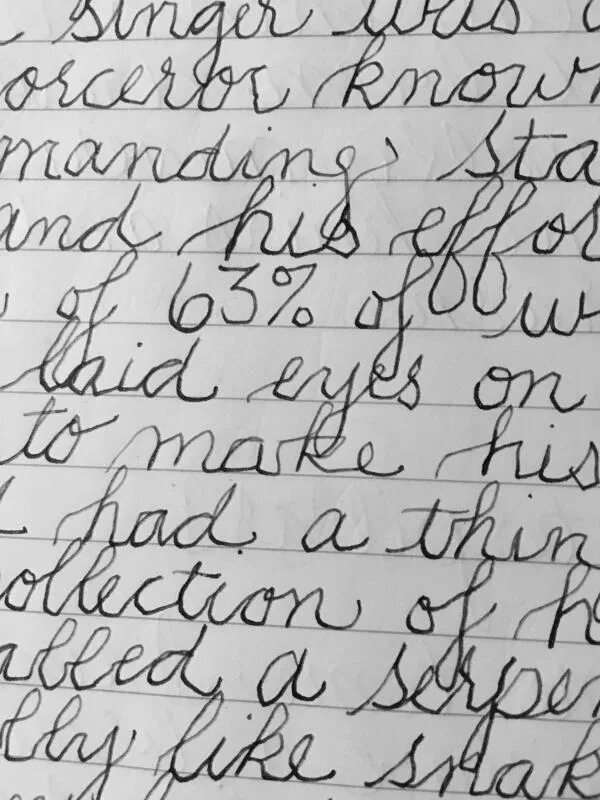 singer was
orceror known
manding, sta
and his effor
of 63% of w
laid eyes on
to make his
had a thin
ollection of h
alled a serpen
lly like snak